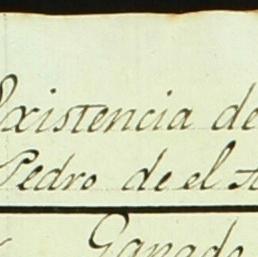 Existencia de
Pedro de el
Ganado